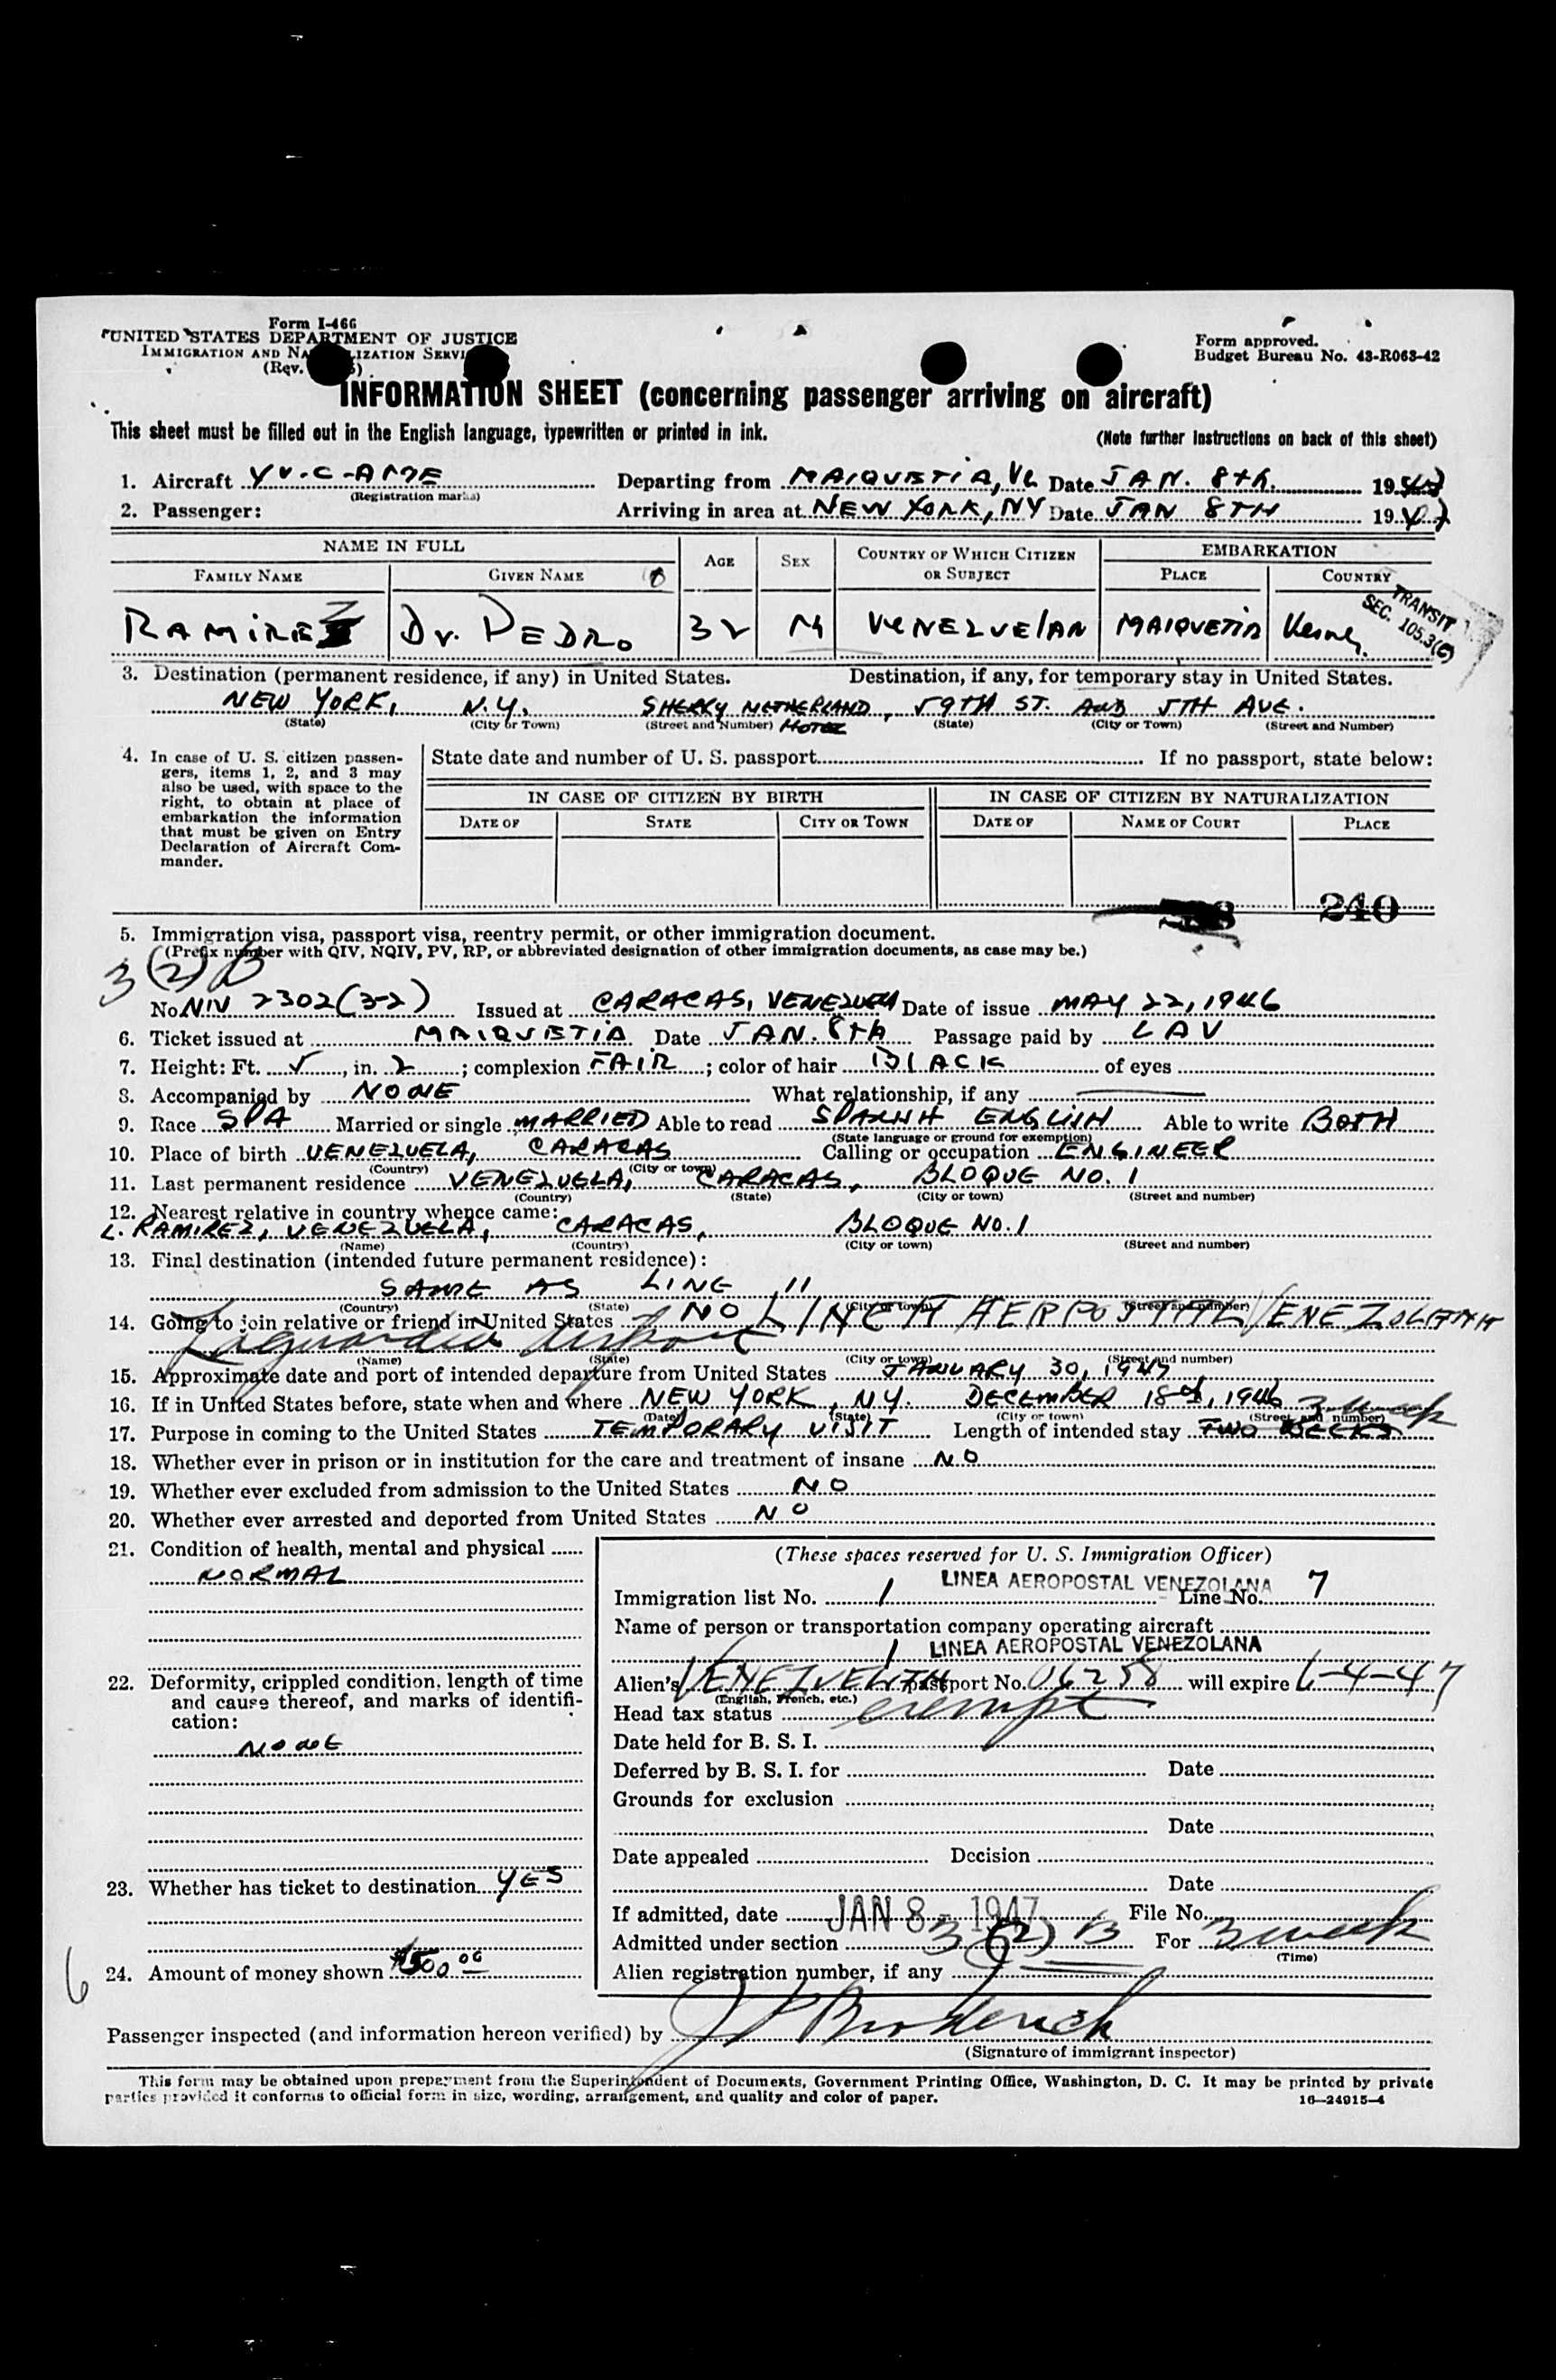 Form I-466
UNITED STATES DEPARTMENT OF JUSTICE
IMMIGRATION AND NA LIZATION SERVI
(Rev. )
Form approved.
Budget Bureau No. 43-R063-42
INFORMATION SHEET (concerning passenger arriving on aircraft)
This sheet must be filled out in the English language, typewritten or printed in ink.
(Note further instructions on back of this sheet)
1. Aircraft YV-C-AME Departing from MAIQUETIA, Date JAN. 8th. 19
(Registration marks)
2. Passenger: Arriving in area at NEW YORK, NY Date JAN 8TH 1947
NAME IN FULL AGE SEX COUNTRY OF WHICH CITIZEN OR SUBJECT EMBARKATION
FAMILY NAME GIVEN NAME PLACE COUNTRY
TRANSIT
SEC. 105.3(C)
RAMIREZ Dr. PEDRO 32 M VENEZUELAN MAIQUETIA
3. Destination (permanent residence, if any) in United States. Destination, if any, for temporary stay in United States.
NEW YORK, N.Y. SHERRY NETHERLAND, 59TH ST. AND 5TH AVE.
(State) (City or Town) (Street and Number) HOTEL (State) (City or Town) (Street and Number)
4. In case of U. S. citizen passengers, items 1, 2, and 3 may also be used, with space to the right, to obtain at place of embarkation the information that must be given on Entry Declaration of Aircraft Commander.
State date and number of U. S. passport If no passport, state below:
IN CASE OF CITIZEN BY BIRTH IN CASE OF CITIZEN BY NATURALIZATION
DATE OF STATE CITY OR TOWN DATE OF NAME OF COURT PLACE
240
5. Immigration visa, passport visa, reentry permit, or other immigration document.
(Prefix number with QIV, NQIV, PV, RP, or abbreviated designation of other immigration documents, as case may be.)
3(2)B
No. NIV 2302(3-2) Issued at CARACAS, VENEZUELA Date of issue MAY 22, 1946
6. Ticket issued at MAIQUETIA Date JAN. 8th Passage paid by LAV
7. Height: Ft. 5, in. 2; complexion FAIR; color of hair BLACK of eyes
8. Accompanied by NONE What relationship, if any
9. Race SPA Married or single MARRIED Able to read SPANISH ENGLISH Able to write BOTH
(State language or ground for exemption)
10. Place of birth VENEZUELA, CARACAS Calling or occupation ENGINEER
(Country) (City or town)
11. Last permanent residence VENEZUELA, CARACAS, BLOQUE NO. 1
(Country) (State) (City or town) (Street and number)
12. Nearest relative in country whence came:
L. RAMIREZ, VENEZUELA, CARACAS, BLOQUE NO. 1
(Name) (Country) (City or town) (Street and number)
13. Final destination (intended future permanent residence):
SAME AS LINE 11
(Country) (State) (City or town) (Street and number)
14. Going to join relative or friend in United States NO LINEA AERPOSTAL VENEZOLANA
Laguardia Airport
(Name) (State) (City or town) (Street and number)
15. Approximate date and port of intended departure from United States JANUARY 30, 1947
16. If in United States before, state when and where NEW YORK, NY. DECEMBER 18th, 1946
(Date) (State) (City or town) (Street and number)
3 week
17. Purpose in coming to the United States TEMPORARY VISIT Length of intended stay TWO WEEKS
18. Whether ever in prison or in institution for the care and treatment of insane NO
19. Whether ever excluded from admission to the United States NO
20. Whether ever arrested and deported from United States NO
21. Condition of health, mental and physical
NORMAL
22. Deformity, crippled condition, length of time and cause thereof, and marks of identification:
NONE
23. Whether has ticket to destination YES
6
24. Amount of money shown $500.00
(These spaces reserved for U. S. Immigration Officer)
LINEA AEROPOSTAL VENEZOLANA
Immigration list No. 1 Line No. 7
Name of person or transportation company operating aircraft
1 LINEA AEROPOSTAL VENEZOLANA
Alien's VENEZUELAN passport No. 06258 will expire 6-4-47
(English, French, etc.)
Head tax status exempt
Date held for B. S. I.
Deferred by B. S. I. for Date
Grounds for exclusion
Date
Date appealed Decision
Date
If admitted, date JAN 8 - 1947 File No.
Admitted under section 3(2)B For 3 week
(Time)
Alien registration number, if any
Passenger inspected (and information hereon verified) by J Broderick
(Signature of immigrant inspector)
This form may be obtained upon prepayment from the Superintendent of Documents, Government Printing Office, Washington, D. C. It may be printed by private
parties provided it conforms to official form in size, wording, arrangement, and quality and color of paper.
16—24915-4